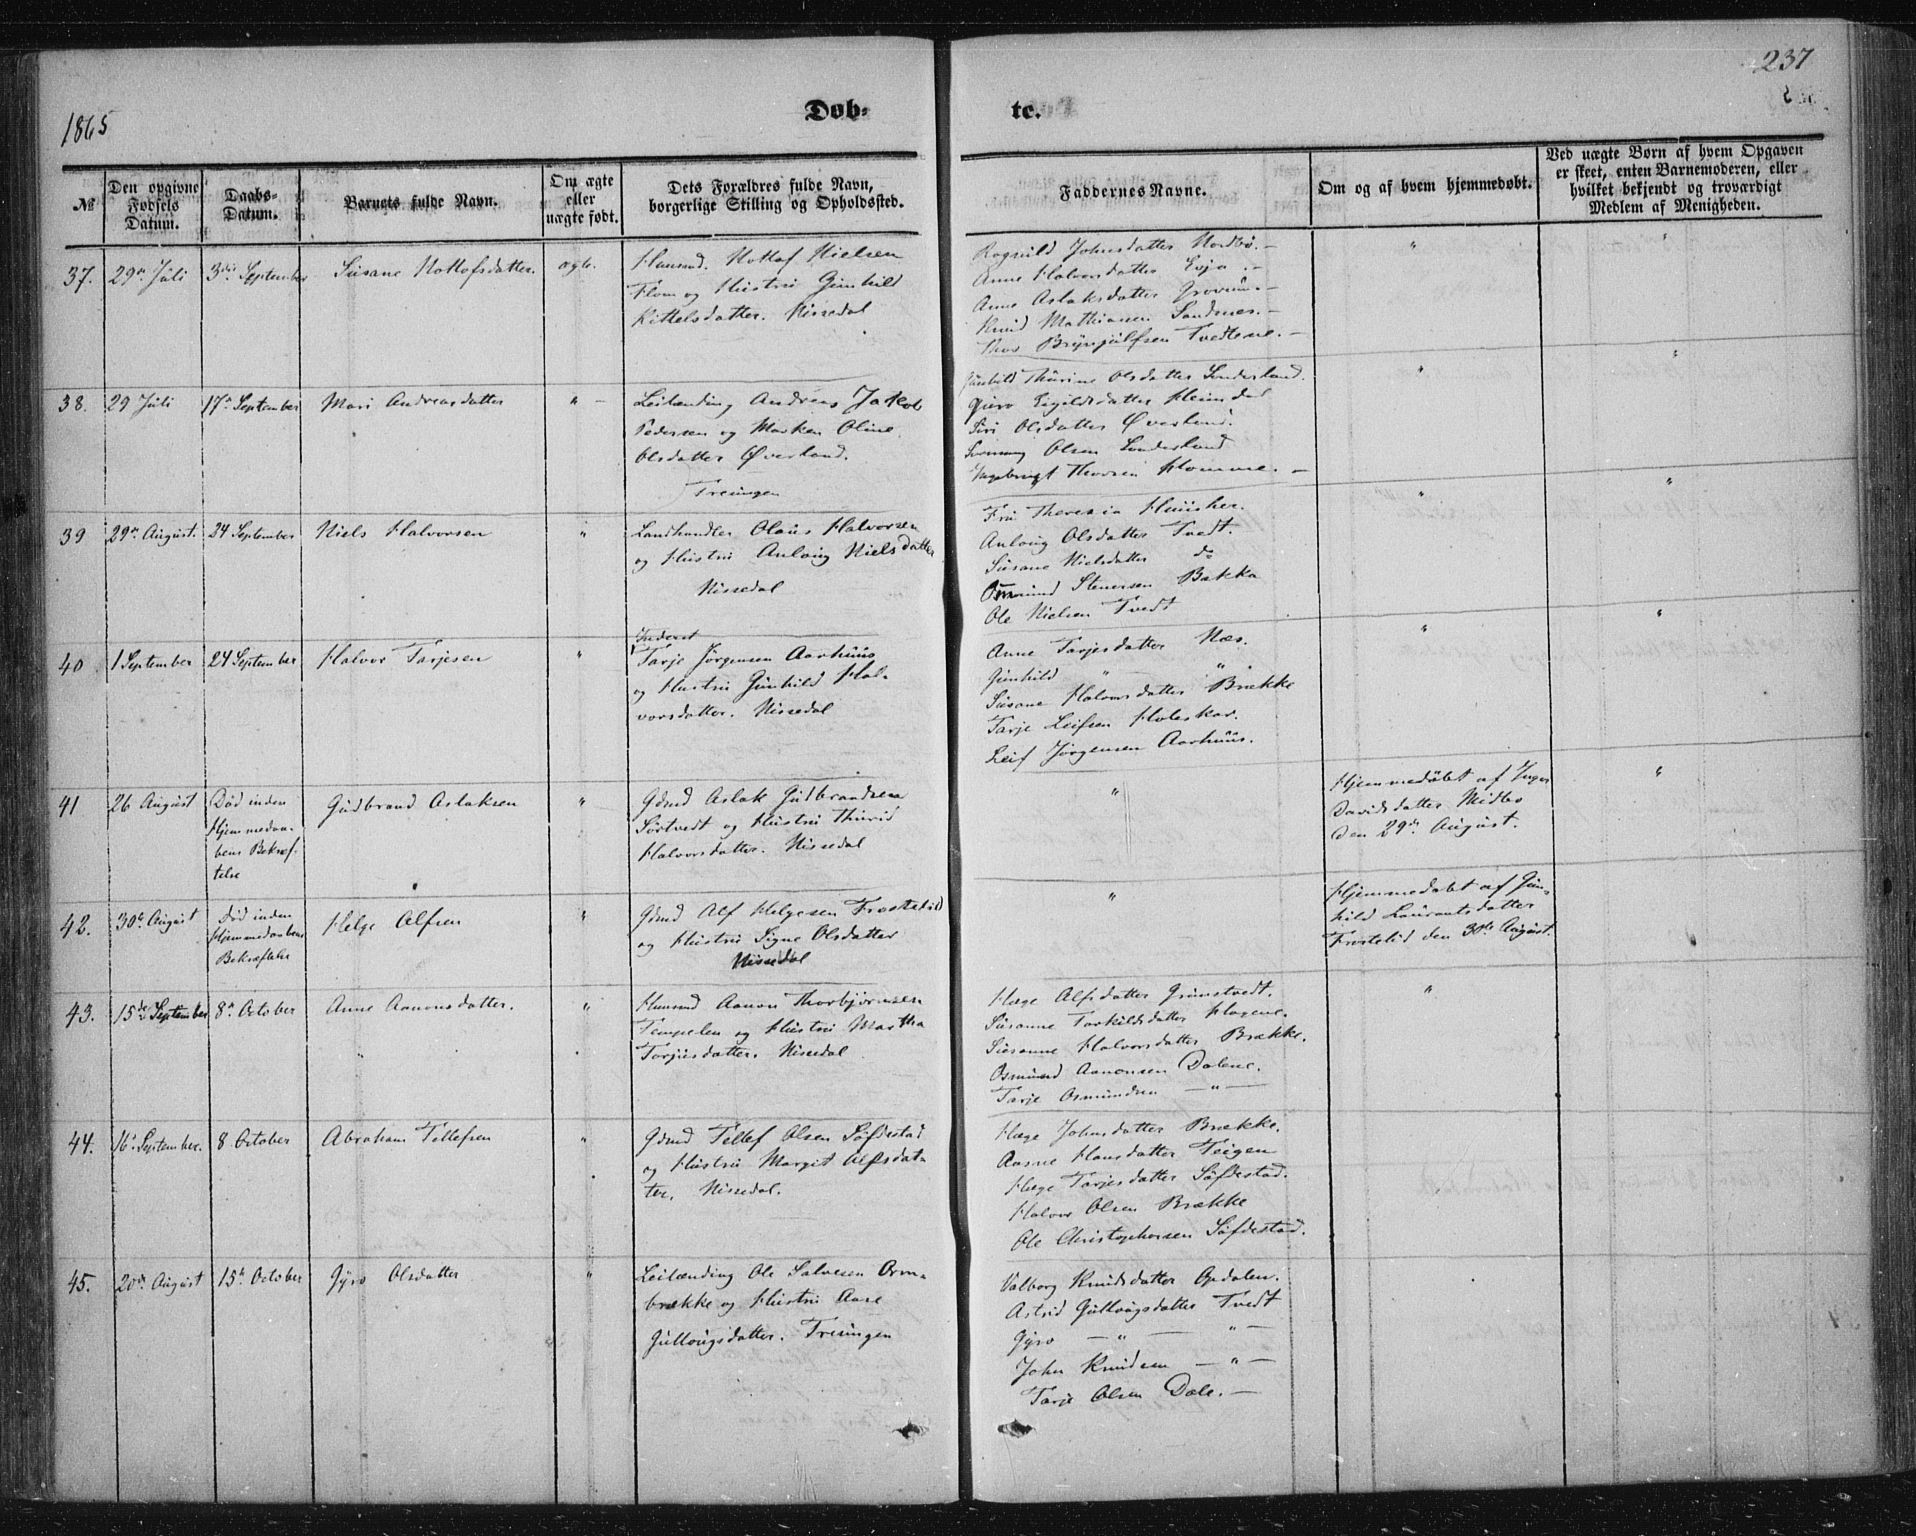 237
1865
Døb-
te.
№
Den opgivne Fødsels Datum.
Daabs-Datum.
Barnets fulde Navn.
Om ægte eller uægte født.
Dets Forældres fulde Navn, borgerlige Stilling og Opholdssted.
Faddernes Navne.
Om og af hvem hjemmedøbt.
Ved uægte Børn af hvem Opgaven er skeet, enten Barnemoderen, eller hvilket bekjendt og troværdigt Medlem af Menigheden.
37. 29de Juli 3die September Susane Nottofsdatter. ægte.
Huusmd. Nottof Nielsen
Flom og Hustru Gunhild
Kittelsdatter. Nissedal
Ragnild Johnsdatter Nordbø. -
Anne Halvorsdatter Evja. -
Anne Aslaksdatter Grovum. -
Knud Mathiasen Sandnes. -
Thor Brynjulfsen Tvedtene. -
38. 29 Juli 17de September Mari Andreasdatter " -
Leilænding Andreas Jakob
Pedersen og Marken Oline
Olsdatter Øverland.
Tresungen
Gunhild Thurine Olsdatter Sunderland.
Gjero Eigildsdatter Heimdal
Siri Olsdatter Øverland.
Olsen Sonderland
Ingebregt Thorsen Homme. -
39 29de August. 24 September Niels Halvorsen "
Landhandler Olaus Halvorsen
og Hustru Anlaug Nielsdatter
Nissedal
Fru Theresia Huusher.
Anlaug Olsdatter Tvedt.
Susane Nielsdatter do
Osmund Stenersen Bakka
Ole Nielsen Tvedt
40 1 September 24 September Halvor Tarjesen "
Inderst
Tarje Jørgensen Aarhuus
og Hustru Gunhild Hal-
vorsdatter. Nissedal
Anne Tarjesdatter Næs.
Gunhild " "
Susane Halvorsdatter Brække
Tarje Leifsen Holeskar.
Leif Jørgensen Aarhuus.
41 26 August Død inden
Hjemmedaa-
bens Bekræf-
telse
Gudbrand Aslaksen "
Gdmd Aslak Gudbrandsen
Sørtvedt og Hustru Thurid
Halvorsdatter. Nissedal
"
Hjemmedøbt af Inger
Davidsdatter Midbø
den 29de August.
42. 30te August Død inden
Hjemmedaabens
Bekræftelse
Helge Alfsen "
Gdmd Alf Helgesen Frostelid
og Hustru Signe Olsdatter
Nissedal
"
Hjemmedøbt af Gun-
hild Laurantsdatter
Frostelid den 30te August.
43. 15de September 8de October Anne Aanonsdatter. "
Huusmd Aanon Thorbjørnsen
Tempelen og Hustru Martha
Torjusdatter. Nissedal
Hæge Alfsdatter Grimstvedt.
Susanne Torkildsdatter Hagene.
Susanne Halvorsdatter Brække.
Osmund Aanonsen Dalene.
Tarje Osmundsen - " -
44. 16de September. 8 October Abraham Tellefsen "
Gdmd Tellef Olsen Søfdestad
og Hustru Margit Alfsdat-
ter. Nissedal.
Hæge Johnsdatter Brække.
Aasne Hansdatter Teigen
Hæge Tarjesdatter Søfdestad.
Halvor Olsen Brække
Ole Christophersen Søfdestad.
45. 20de August 15de October Gyro Olsdatter "
Leilænding Ole Salvesen Orm-
brække og Hustru Aase
Gullougsdatter. Tresungen
Valborg Knudsdatter Opdalen.
Astrid Gullougsdatter Tvedt
Gyro - " - " -
John Knudsen - " -
Tarje Olsen Dale. -